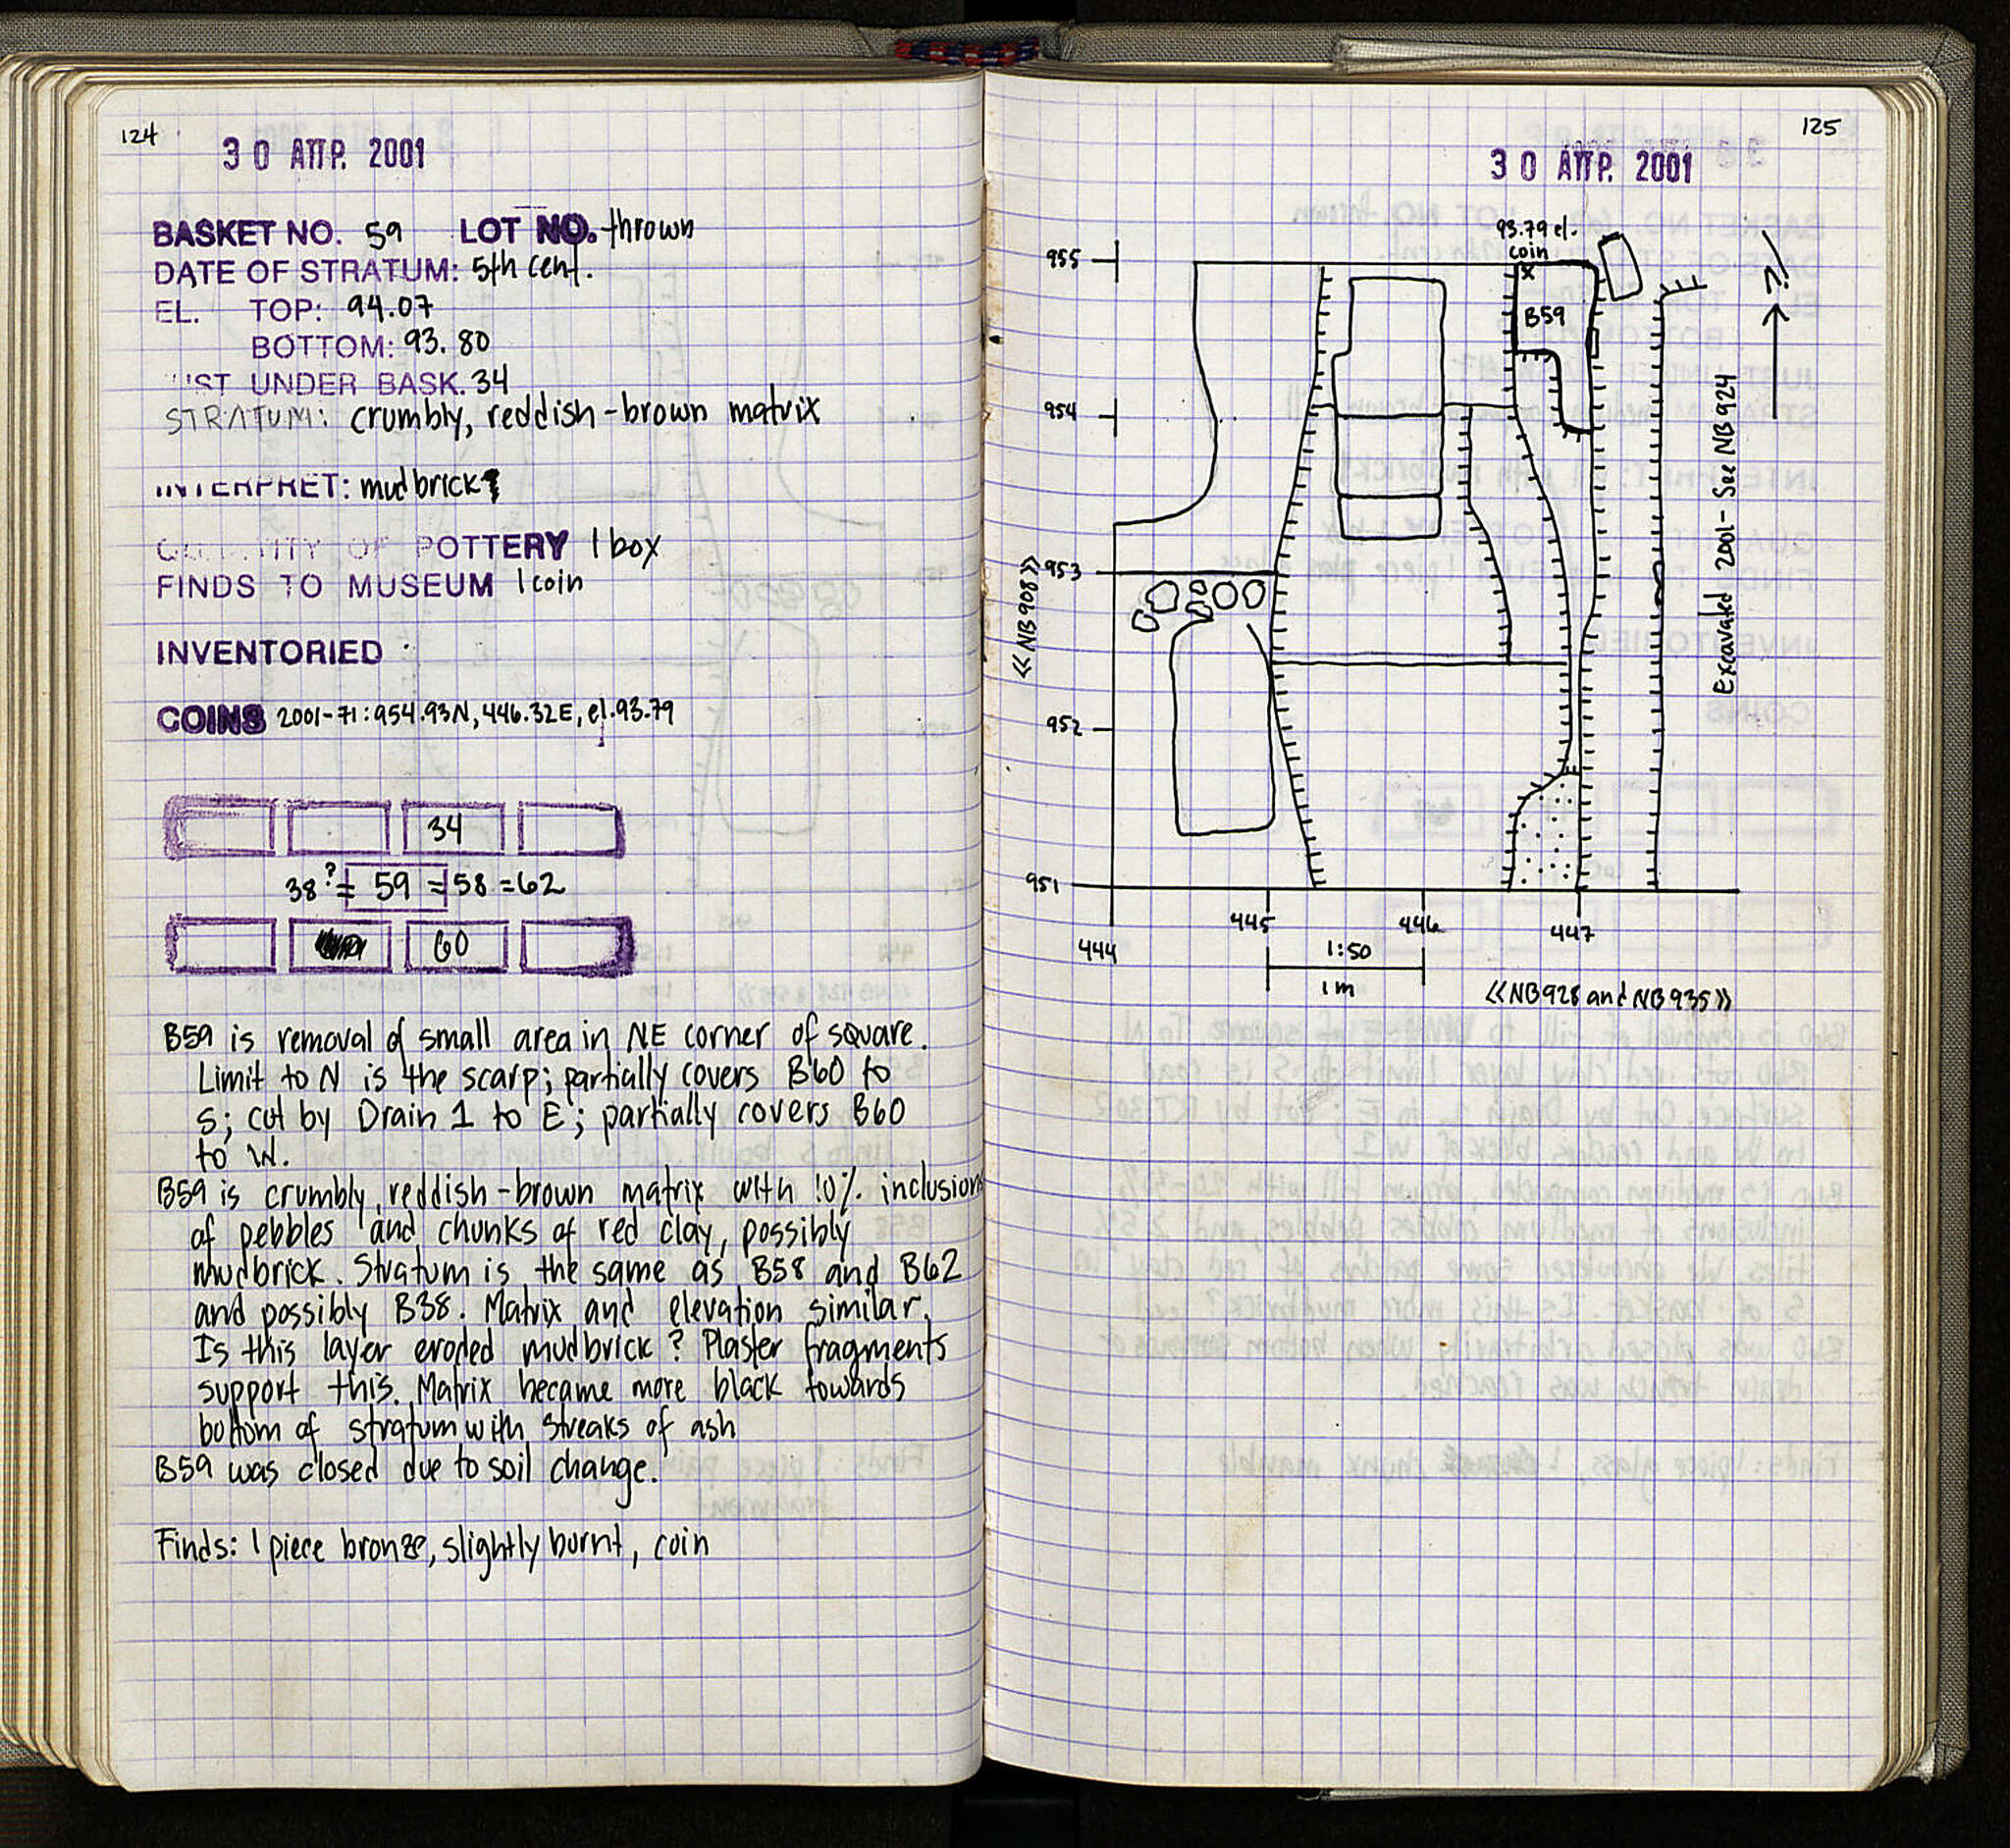 124
30 ΑΠΡ. 2001
BASKET NO. 59 LOT NO. thrown
DATE OF STRATUM: 5th cent.
EL. TOP: 94.07
BOTTOM: 93.80
UST UNDER BASK. 34
STRATUM: crumbly, reddish-brown matrix
INTERPRET: mudbrick?
QUANTITY OF POTTERY 1 box
FINDS TO MUSEUM 1 coin
INVENTORIED
COINS 2001-71: 954.93N, 446.32E, el. 93.79
34
38 ?= 59 = 58 = 62
60
B59 is removal of small area in NE corner of square.
Limit to N is the scarp; partially covers B60 to
S; cut by Drain 1 to E; partially covers B60
to W.
B59 is crumbly, reddish-brown matrix with 10% inclusions
of pebbles and chunks of red clay, possibly
mudbrick. Stratum is the same as B58 and B62
and possibly B38. Matrix and elevation similar.
Is this layer eroded mudbrick? Plaster fragments
support this. Matrix became more black towards
bottom of stratum with streaks of ash
B59 was closed due to soil change.
Finds: 1 piece bronze, slightly burnt, coin
125
30 ΑΠΡ. 2001
93.79 el.
coin
x
955
B59
N
954
Excavated 2001 - See NB924
953
<<NB908>>
952
951
445
446
447
444
1:50
1m
<<NB928 and NB935>>